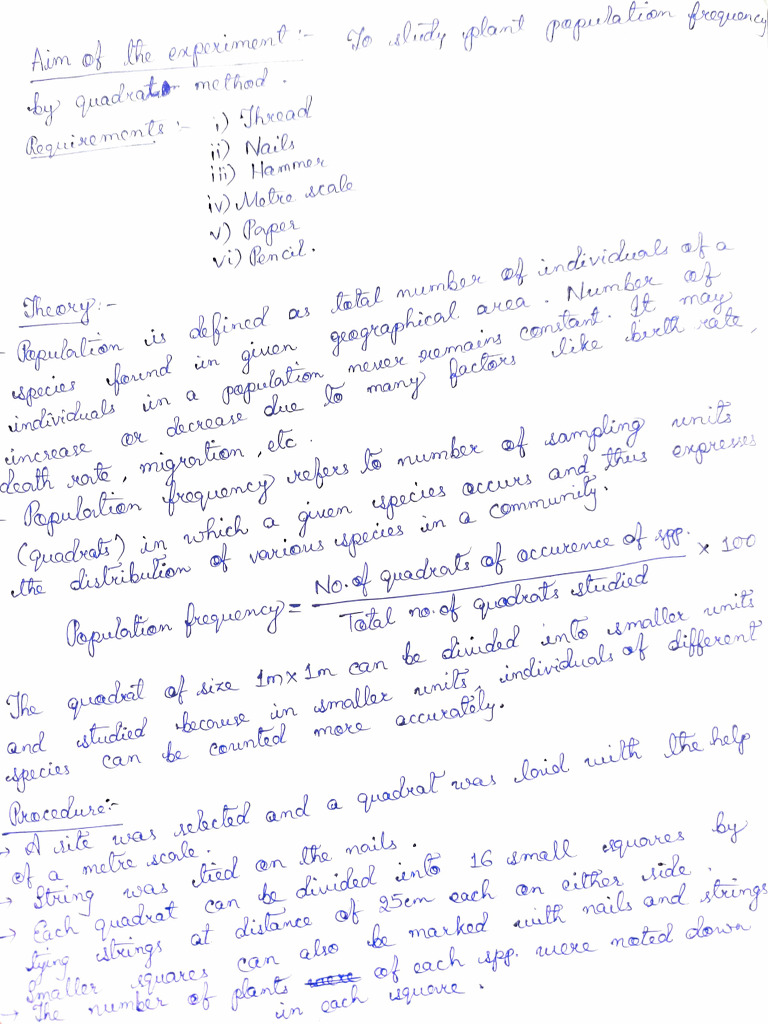 Aim of the experiment :- To study plant population frequency
by quadrat method.
Requirements :- i) Thread
ii) Nails
iii) Hammer
iv) Metre scale
v) Paper
vi) Pencil.
Theory:-
- Population is defined as total number of individuals of a
species found in given geographical area. Number of
individuals in a population never remains constant. It may
increase or decrease due to many factors like birth rate,
death rate, migration, etc.
- Population frequency refers to number of sampling units
(quadrats) in which a given species occurs and thus expresses
the distribution of various species in a community.
Population frequency = No. of quadrats of occurence of spp. / Total no. of quadrats studied × 100
The quadrat of size 1m × 1m can be divided into smaller units
and studied because in smaller units, individuals of different
species can be counted more accurately.
Procedure:-
→ A site was selected and a quadrat was laid with the help
of a metre scale.
→ String was tied on the nails.
→ Each quadrat can be divided into 16 small squares by
tying strings at distance of 25cm each on either side.
Smaller squares can also be marked with nails and strings
→ The number of plants were of each spp. were noted down
in each square.